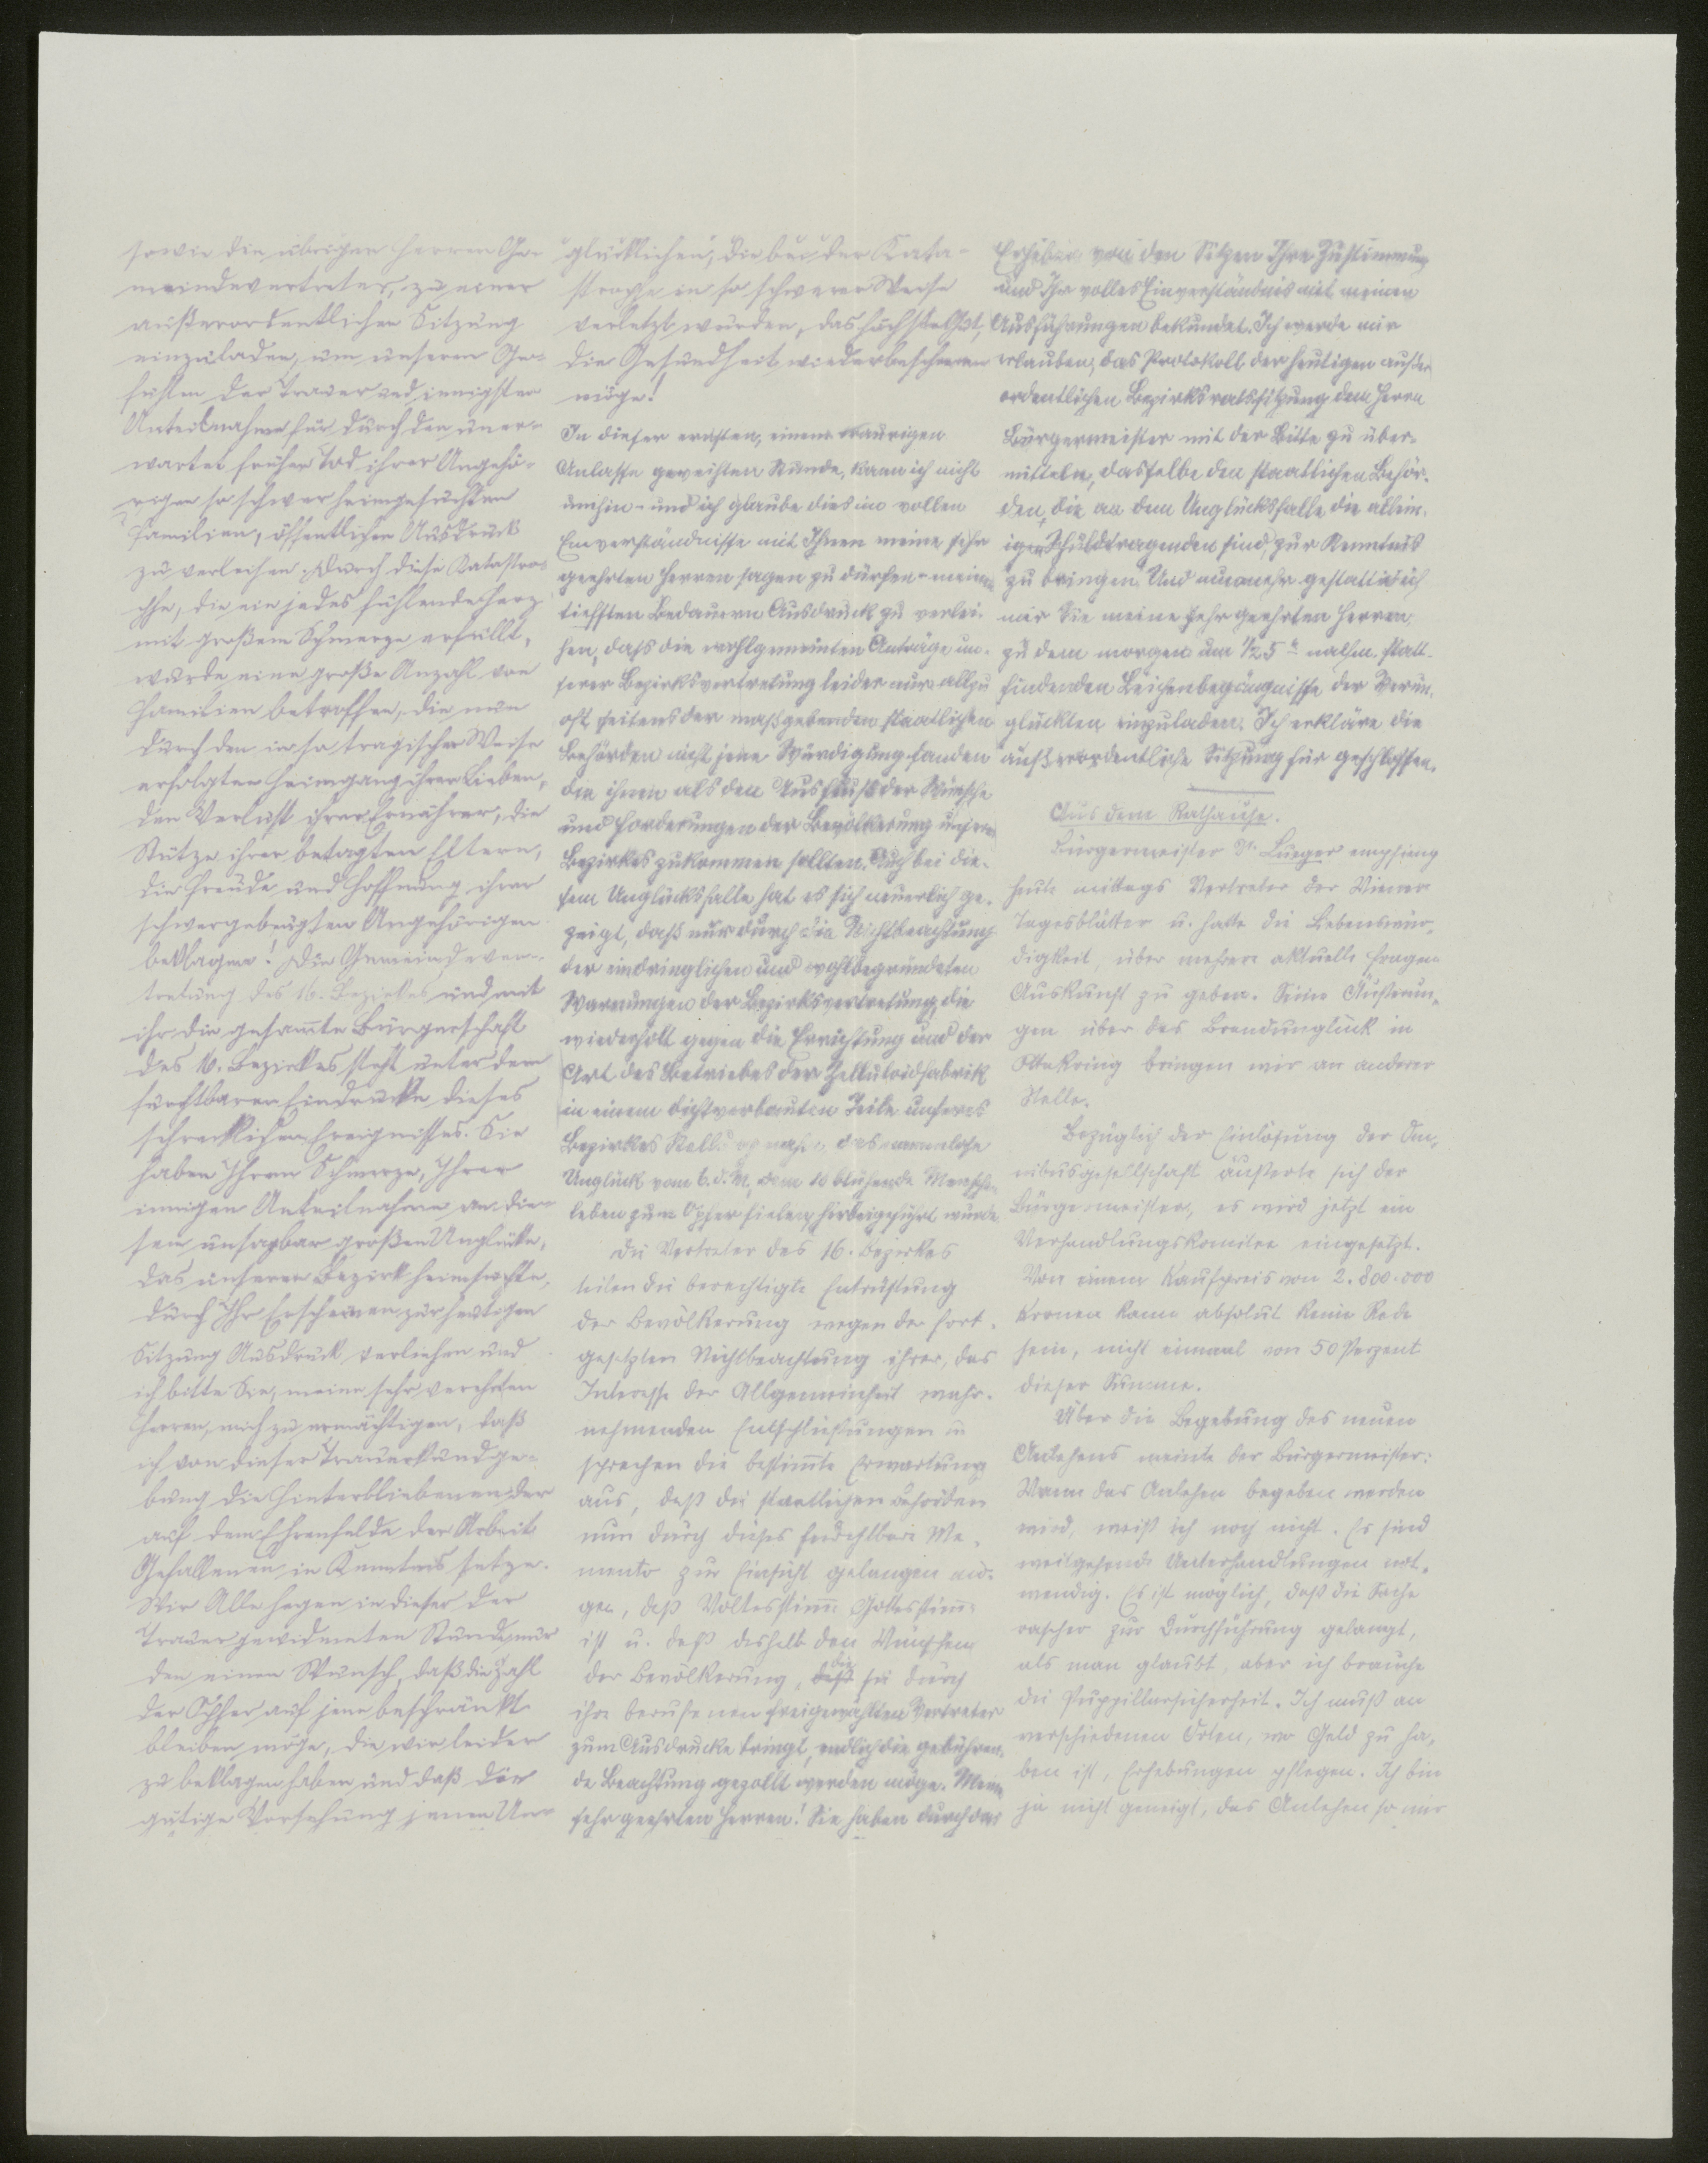 sowie die übrigen Herren Ge-
meindevertreter, zu einer
außerordentlichen Sitzung
einzuladen, um unseren Ge-
fühlen der Trauer und innigster
Anteilnahme für durch den uner-
wartet frühen Tod ihrer Angehö-
rigen so schwer heimgesuchten
Familien, öffentlichen Ausdruck
zu verleihen. Durch diese Katastro-
phe, die ein jedes fühlende Herz
mit großem Schmerze erfüllt,
wurde eine große Anzahl von
Familien betroffen, die nun
durch den in so tragischer Weise
erfolgten Heimgang ihrer Lieben,
den Verlust ihrer Ernährer, die
Stütze ihrer betagten Eltern,
die Freude und Hoffnung ihrer
schwergebeugten Angehörigen
beklagen! Die Gemeindever-
tretung des 16. Bezirkes und mit
ihr die gesamte Bürgerschaft
des 16. Bezirkes steht unter dem
furchtbaren Eindrucke dieses
schrecklichen Ereignisses. Sie
haben Ihrem Schmerze, Ihrer
innigen Anteilnahme an die-
sem unsagbar großen Unglücke,
das unseren Bezirk heimsuchte,
durch Ihr Erscheinen zur heutigen
Sitzung Ausdruck verliehen und
ich bitte Sie, meine sehr verehrten
Herren, mich zu ermächtigen, daß
ich von dieser Trauerkundge-
bung die Hinterbliebenen der
auf dem Ehrenfelde der Arbeit
Gefallenen in Kenntnis setze.
Wir Alle hegen in dieser der
Trauer gewidmeten Stunde nur
den einen Wunsch, daß die Zahl
der Opfer auf jene beschränkt
bleiben möge, die wir leider
zu beklagen haben und daß die
gütige Vorsehung jenen Un-
glücklichen, die bei der Kata-
strophe in so schwerer Weise
verletzt wurden, das höchste Gut,
die Gesundheit wiederbescheren
möge!
In dieser ernsten, einem traurigen
Anlasse geweihten Stunde, kann ich nicht
umhin - und ich glaube dies im vollen
Einverständnisse mit Ihnen meine sehr
geehrten Herren sagen zu dürfen - meinem
tiefsten Bedauern Ausdruck zu verlei-
hen, dass die wohlgemeinten Anträge un-
serer Bezirksvertretung leider nur allzu
oft seitens der maßgebenden staatlichen
Behörden nicht jene Würdigung fanden
die ihnen als den Ausfluß der Wünsche
und Forderungen der Bevölkerung unseres
Bezirkes zukommen sollten. Auch bei die-
sem Unglücksfalle hat es sich neuerlich ge-
zeigt, daß nur durch die Nichtbeachtung
der eindringlichen und wohlbegründeten
Warnungen der Bezirksvertretung, die
wiederholt gegen die Errichtung und der
Art des Betriebes der Zelluloidfabrik
in einem dichtverbauten Teile unseres
Bezirkes Stellung nahm, das namenlose
Unglück vom 6. d. M., dem 10 blühende Menschen-
leben zum Opfer fielen, herbeigeführt wurde.
Die Vertreter des 16. Bezirkes
teilen die berechtigte Entrüstung
der Bevölkerung wegen der fort-
gesetzten Nichtbeachtung ihrer, das
Interesse der Allgemeinheit wahr-
nehmenden Entschließungen u.
sprechen die bestimmte Erwartung
aus, daß die staatlichen Behörden
nun durch dieses furchtbare Me-
mento zur Einsicht gelangen mö-
gen, daß Volkesstimme Gottesstimme
ist u. daß deshalb den Wünschen
der Bevölkerung, die sie durch
ihre berufenen freigewählten Vertreter
zum Ausdrucke bringt, endlich die gebühren-
de Beachtung gezollt werden möge. Meine
sehr geehrten Herren! Sie haben durch das
Erheben von den Sitzen Ihre Zustimmung
und Ihr volles Einverständnis mit meinen
Ausführungen bekundet. Ich werde mir
erlauben, das Protokoll der heutigen außer-
ordentlichen Bezirksratssitzung dem Herrn
Bürgermeister mit der Bitte zu über-
mitteln, dasselbe den staatlichen Behör-
den, die an dem Unglücksfalle die allein-
igen Schuldtragenden sind, zur Kenntnis
zu bringen. Und nunmehr gestatte ich
mir Sie meine sehr geehrten Herren,
zu dem morgen um 1/2 5 h nachm. statt-
findenden Leichenbegängnisse der Verun-
glückten einzuladen. Ich erkläre die
außerordentliche Sitzung für geschlossen.
Aus dem Rathause.
Bürgermeister Dr. Lueger empfieng
heute mittags Vertreter der Wiener
Tagesblätter u. hatte die Liebenswür-
digkeit, über mehrere aktuelle Fragen
Auskunft zu geben. Seine Äußerun-
gen über das Brandunglück in
Ottakring bringen wir an anderer
Stelle.
Bezüglich der Einlösung der Om-
nibusgesellschaft äußerte sich der
Bürgermeister, es wird jetzt ein
Verhandlungskomitee eingesetzt.
Von einem Kaufpreis von 2.800.000
Kronen kann absolut keine Rede
sein, nicht einmal von 50 Perzent
dieser Summe.
Über die Begebung des neuen
Anlehens meinte der Bürgermeister:
Wann das Anlehen begeben werden
wird, weiß ich noch nicht. Es sind
weitgehende Unterhandlungen not-
wendig. Es ist möglich, daß die Sache
rascher zur Durchführung gelangt,
als man glaubt, aber ich brauche
die Puppillarsicherheit. Ich muß an
verschiedenen Orten, wo Geld zu ha-
ben ist, Erhebungen pflegen. Ich bin
ja nicht geneigt, das Anlehen so mir